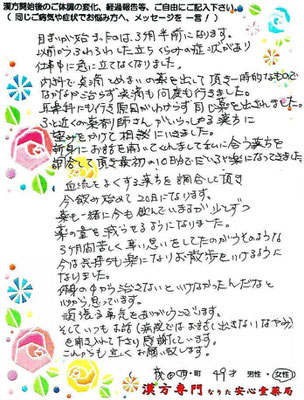 漢方開始後のご体調の変化、経過報告等、ご自由にご記入下さい。
(同じご病気や症状でお悩み方へ、メッセージを一言/)
目まいが始まったのは3カ月半前になります。
以前からふわふわした立ちくらみの症状があり
仕事中に急に立てなくなりました。
内科で点滴とめまいの薬を出して頂き一時的なもので
なかなか治らず点滴も何度も行きました。
耳鼻科にも行き原因がわからず目まい薬を出されました。
ふと近くの薬剤師さんがいらっしゃる漢方に
望みをかけて相談にいきました。
親身にお話を聞いてくれましてそれに合う薬たちを
調合して頂き最初の10日分でだいぶ楽になってきました
血流をよくする薬たちを調合して頂き
今飲み始めて20日になります。
薬も一緒に今も飲んでいますが少しずつ
薬の量を減らせるようになりました。
3カ月間苦しく辛い思いをしてたのがうそのような
今は気持ちも楽になりお散歩もいけるように
なりました。
体の中から治さないといけなかったんだなと
いまから思っています。
頑張る勇気をありがとうございます。
そしていつもお話(病院ではお話しで出来ないなやみ)
を聞き入れて下さり感謝しています。
これからも宜しくお願い致します。
市・町 49才 男性・女性
漢方専門 なりた安心堂薬局